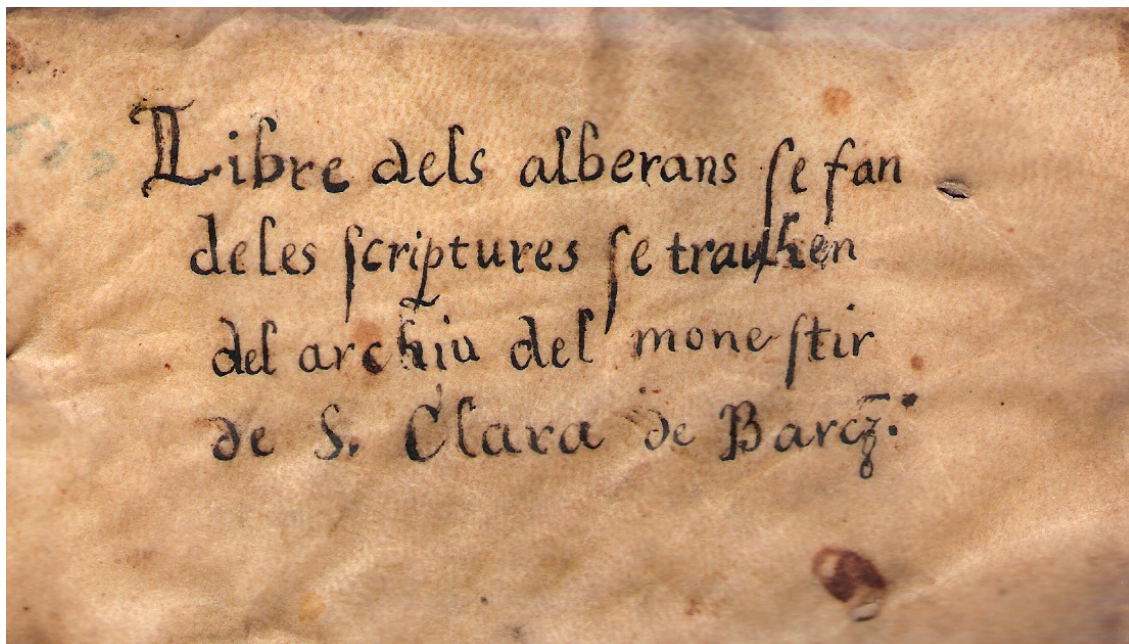 Libre dels alberans ſe fan
deles ſcriptures ſe trauhen
del archiu del moneſtir
de S. Clara de Barcª.